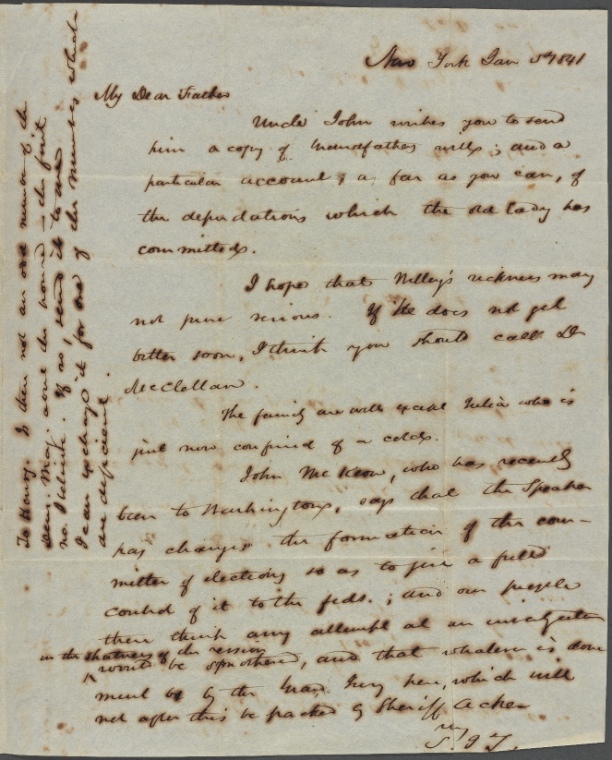 New York Jan 5th 1841
My Dear Father
Uncle John wishes you to send
him a copy of Grandfathers will; and a
particular account, as far as you can, of
the depredations which the old lady has
committed.
I hope that Willey's sickness may
not prove serious. If he does not get
better soon, I think you should call Dr
McClellan.
The family are well except Julia who is
just now confined of a cold.
John McKeon, who has recently
been to Washington, says that the Speaker
has changed the formation of the com-
mittee of elections so as to give a full
control of it to the feds.; and our people
there think any attempt at an investigation
in the shortness of the session
would be smothered, and that whatever is done
must be by the Grand Jury here, which will
not after this be packed by Sheriff Acker
S. J. T.
To Henry. Is there not an odd number of the
Dem. Mag. among the bound in the front
no. Publick. If so, send it to me.
I can exchange it for one of the numbers which
are deficient.